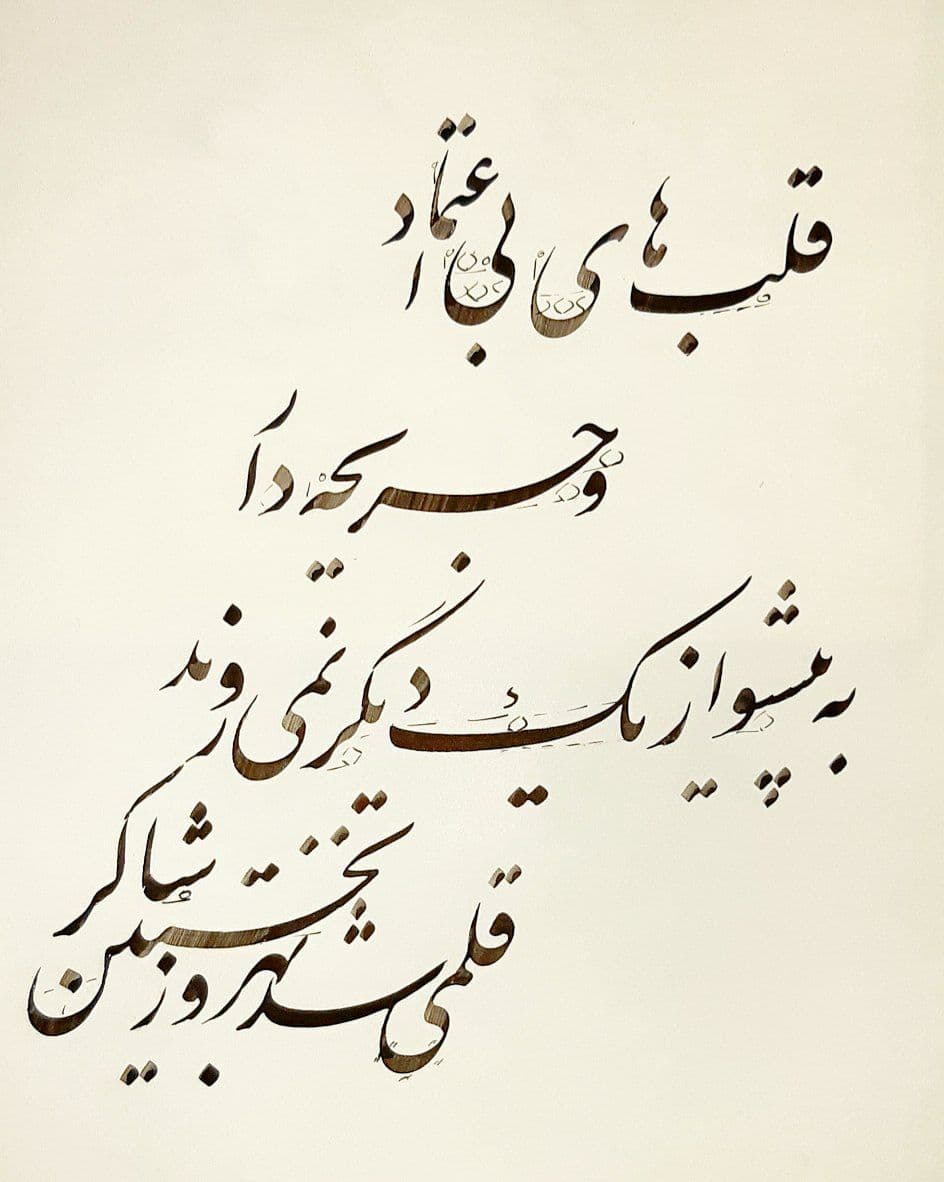 قلب های بی اعتماد
و جریحه دار
به پیشواز یک دیگر نمی روند
قلمی شد بهروز نخستین شاکر